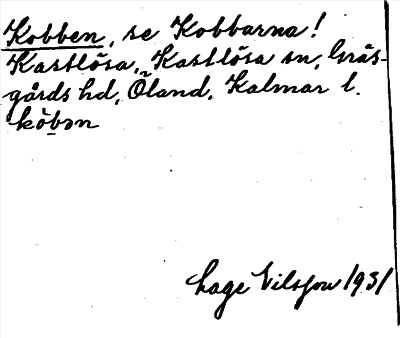 Kobben, se Kobbarna!
Kastlösa, Kastlösa sn, Gräs-
gårds hd, Öland, Kalmar l.
kòbən
Lage Nilsson 1931